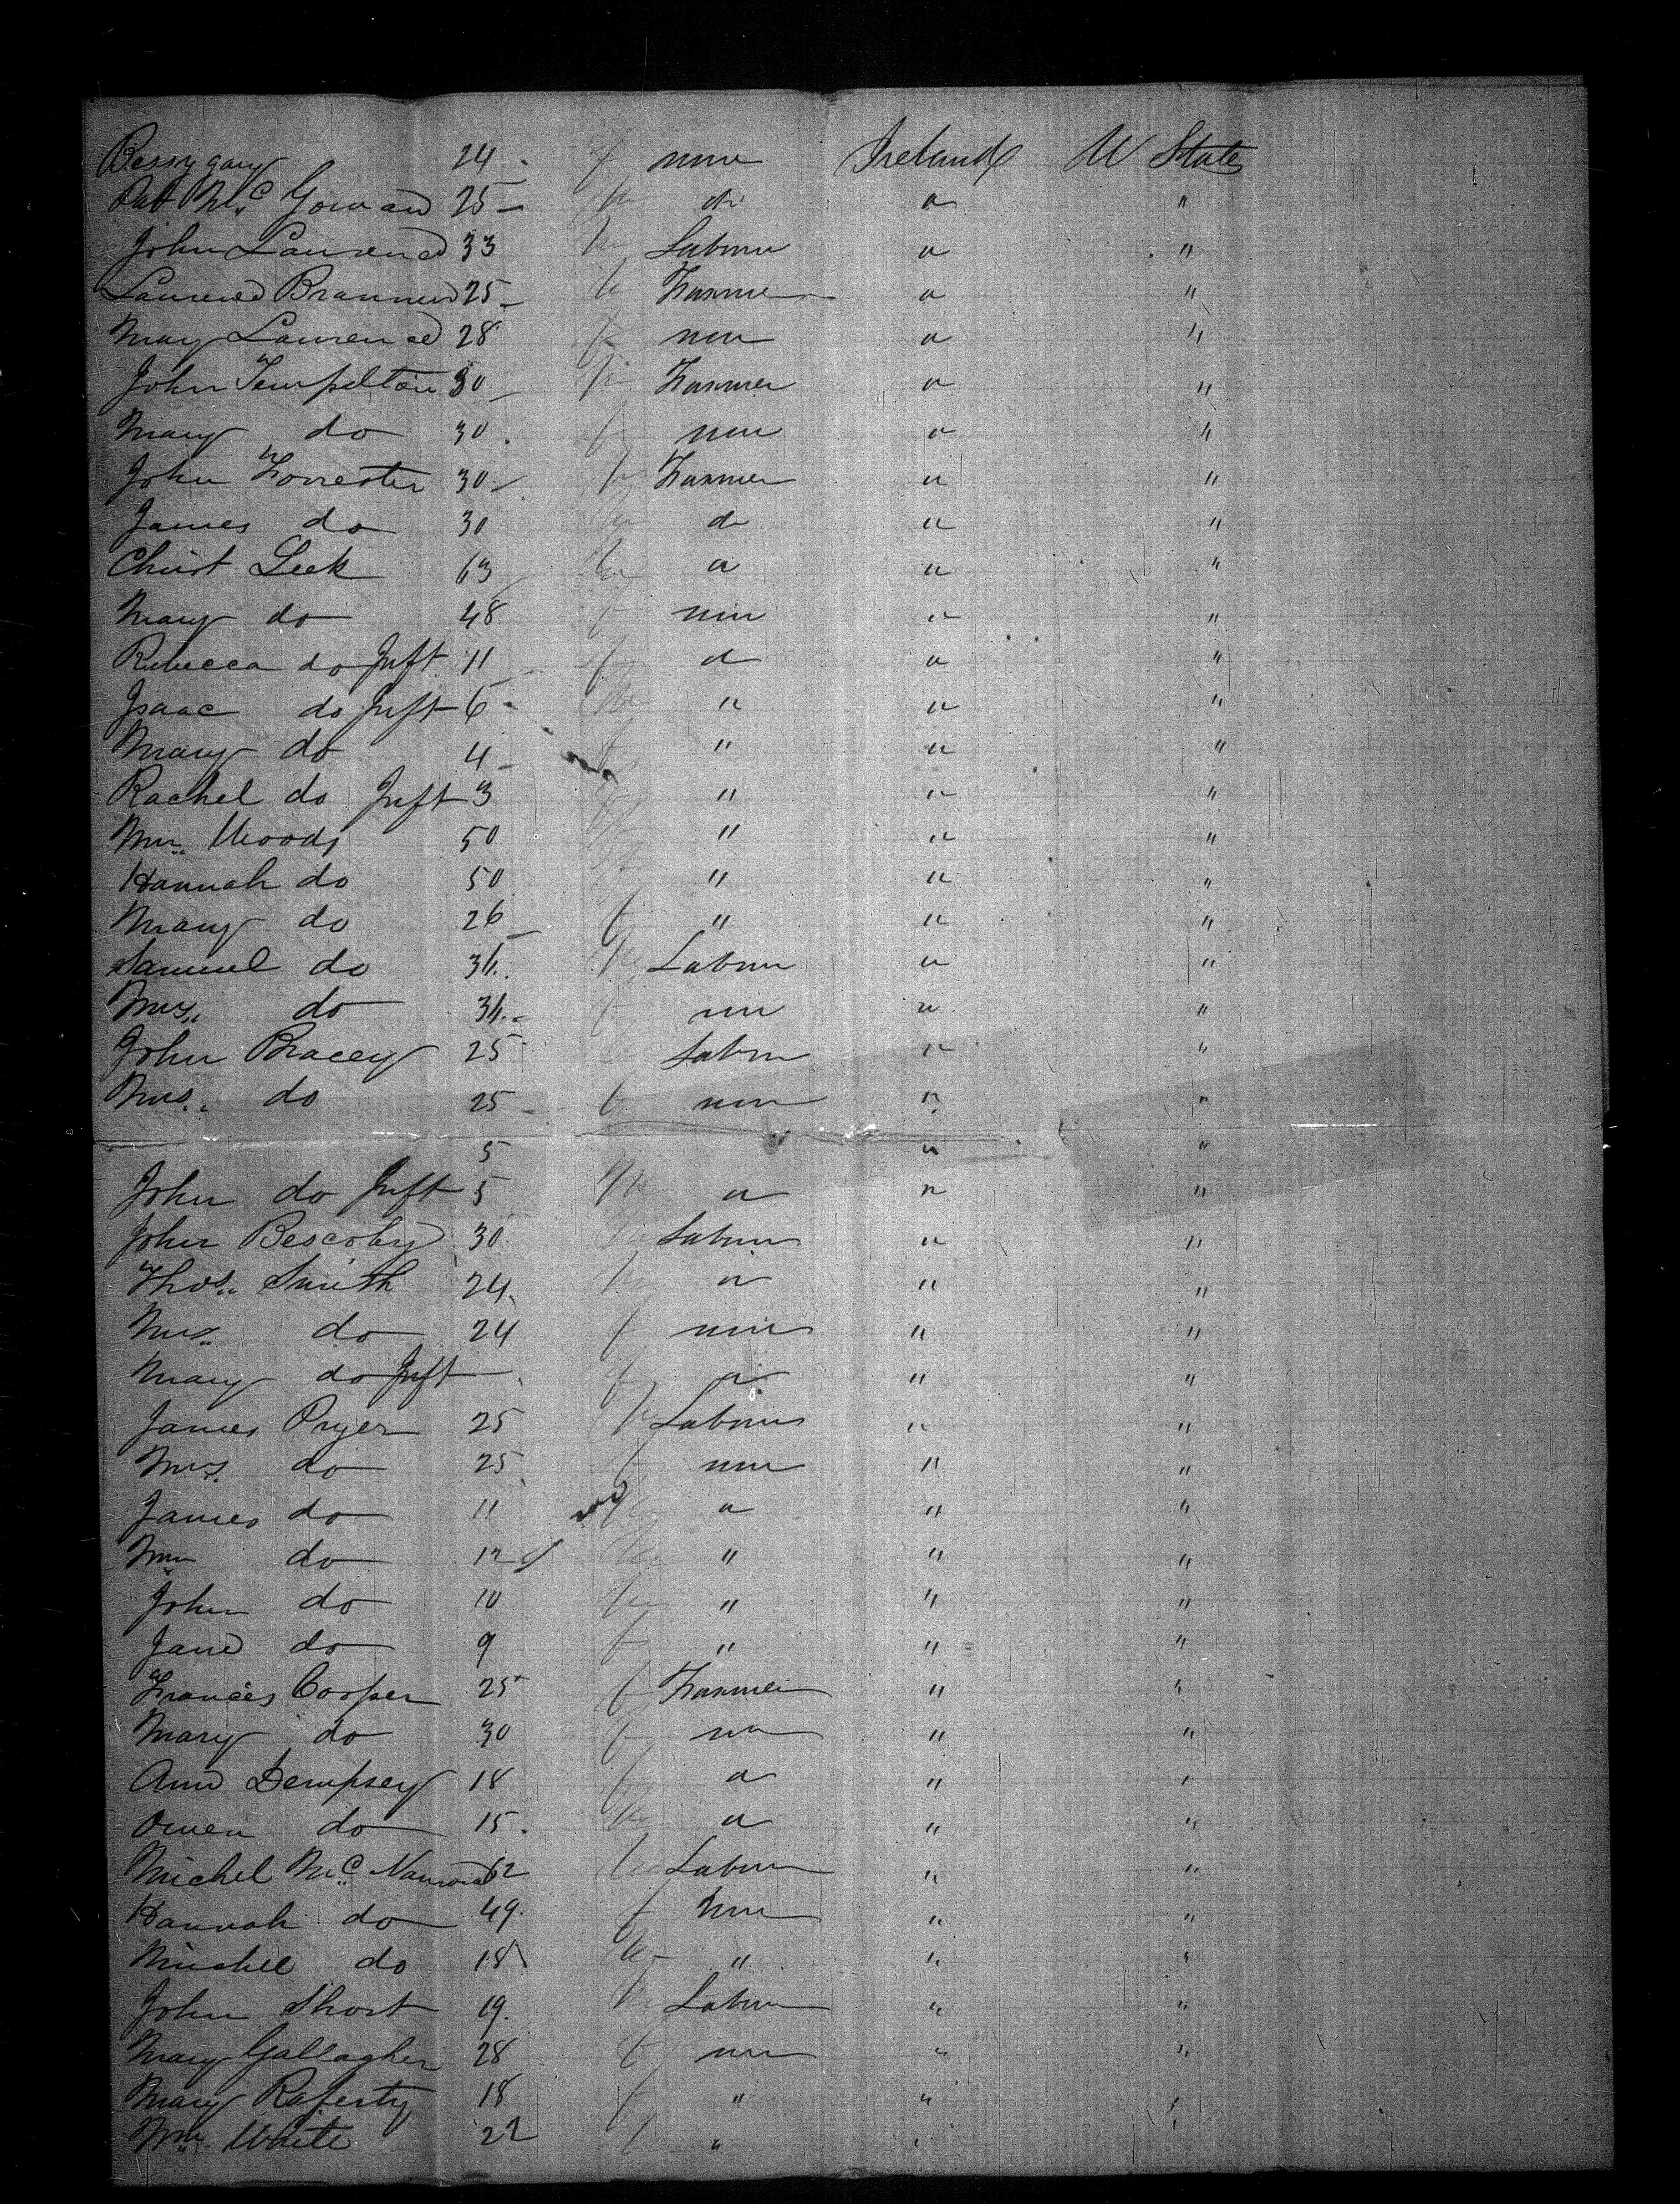 Bessy Gary 24 f none Ireland U States
Pat McGowan 25 m do " "
John Laurence 33 m Labour " "
Laurence Brannen 25 m Farmer " "
Mary Laurence 28 f none " "
John Tempelton 30 m Farmer " "
Mary do 30 f none " "
John Forrester 30 m Farmer " "
James do 30 m do " "
Christ Leek 63 m " " "
Mary do 48 f none " "
Rebecca do Inft 11 f do " "
Isaac do Inft 6 m " " "
Mary do 4 f " " "
Rachel do Inft 3 f " " "
Wm Woods 50 " " "
Hannah do 50 f " " "
Mary do 26 f " " "
Samuel do 34 m Labour " "
Mrs do 34 f none " "
John Bracey 25 m Labour " "
Mrs do 25 f none " "
5 " "
John do Inft 5 m " " "
John Bescoby 30 m Labour " "
Thos Smith 24 m " " "
Mrs do 24 f none " "
Mary do Inft f " " "
James Pryer 25 m Labour " "
Mrs do 25 f none " "
James do 11 m " " "
Wm do 12 m " " "
John do 10 m " " "
Jane do 9 f " " "
Frances Cooper 25 f Farmer " "
Mary do 30 f none " "
Ann Dempsey 18 f " " "
Owen do 15 m " " "
Michel McNamara 62 m Labour " "
Hannah do 49 f none " "
Michel do 18 m " " "
John Short 19 m Labour " "
Mary Gallagher 28 f none " "
Mary Raferty 18 f " " "
Wm White 22 m " " "